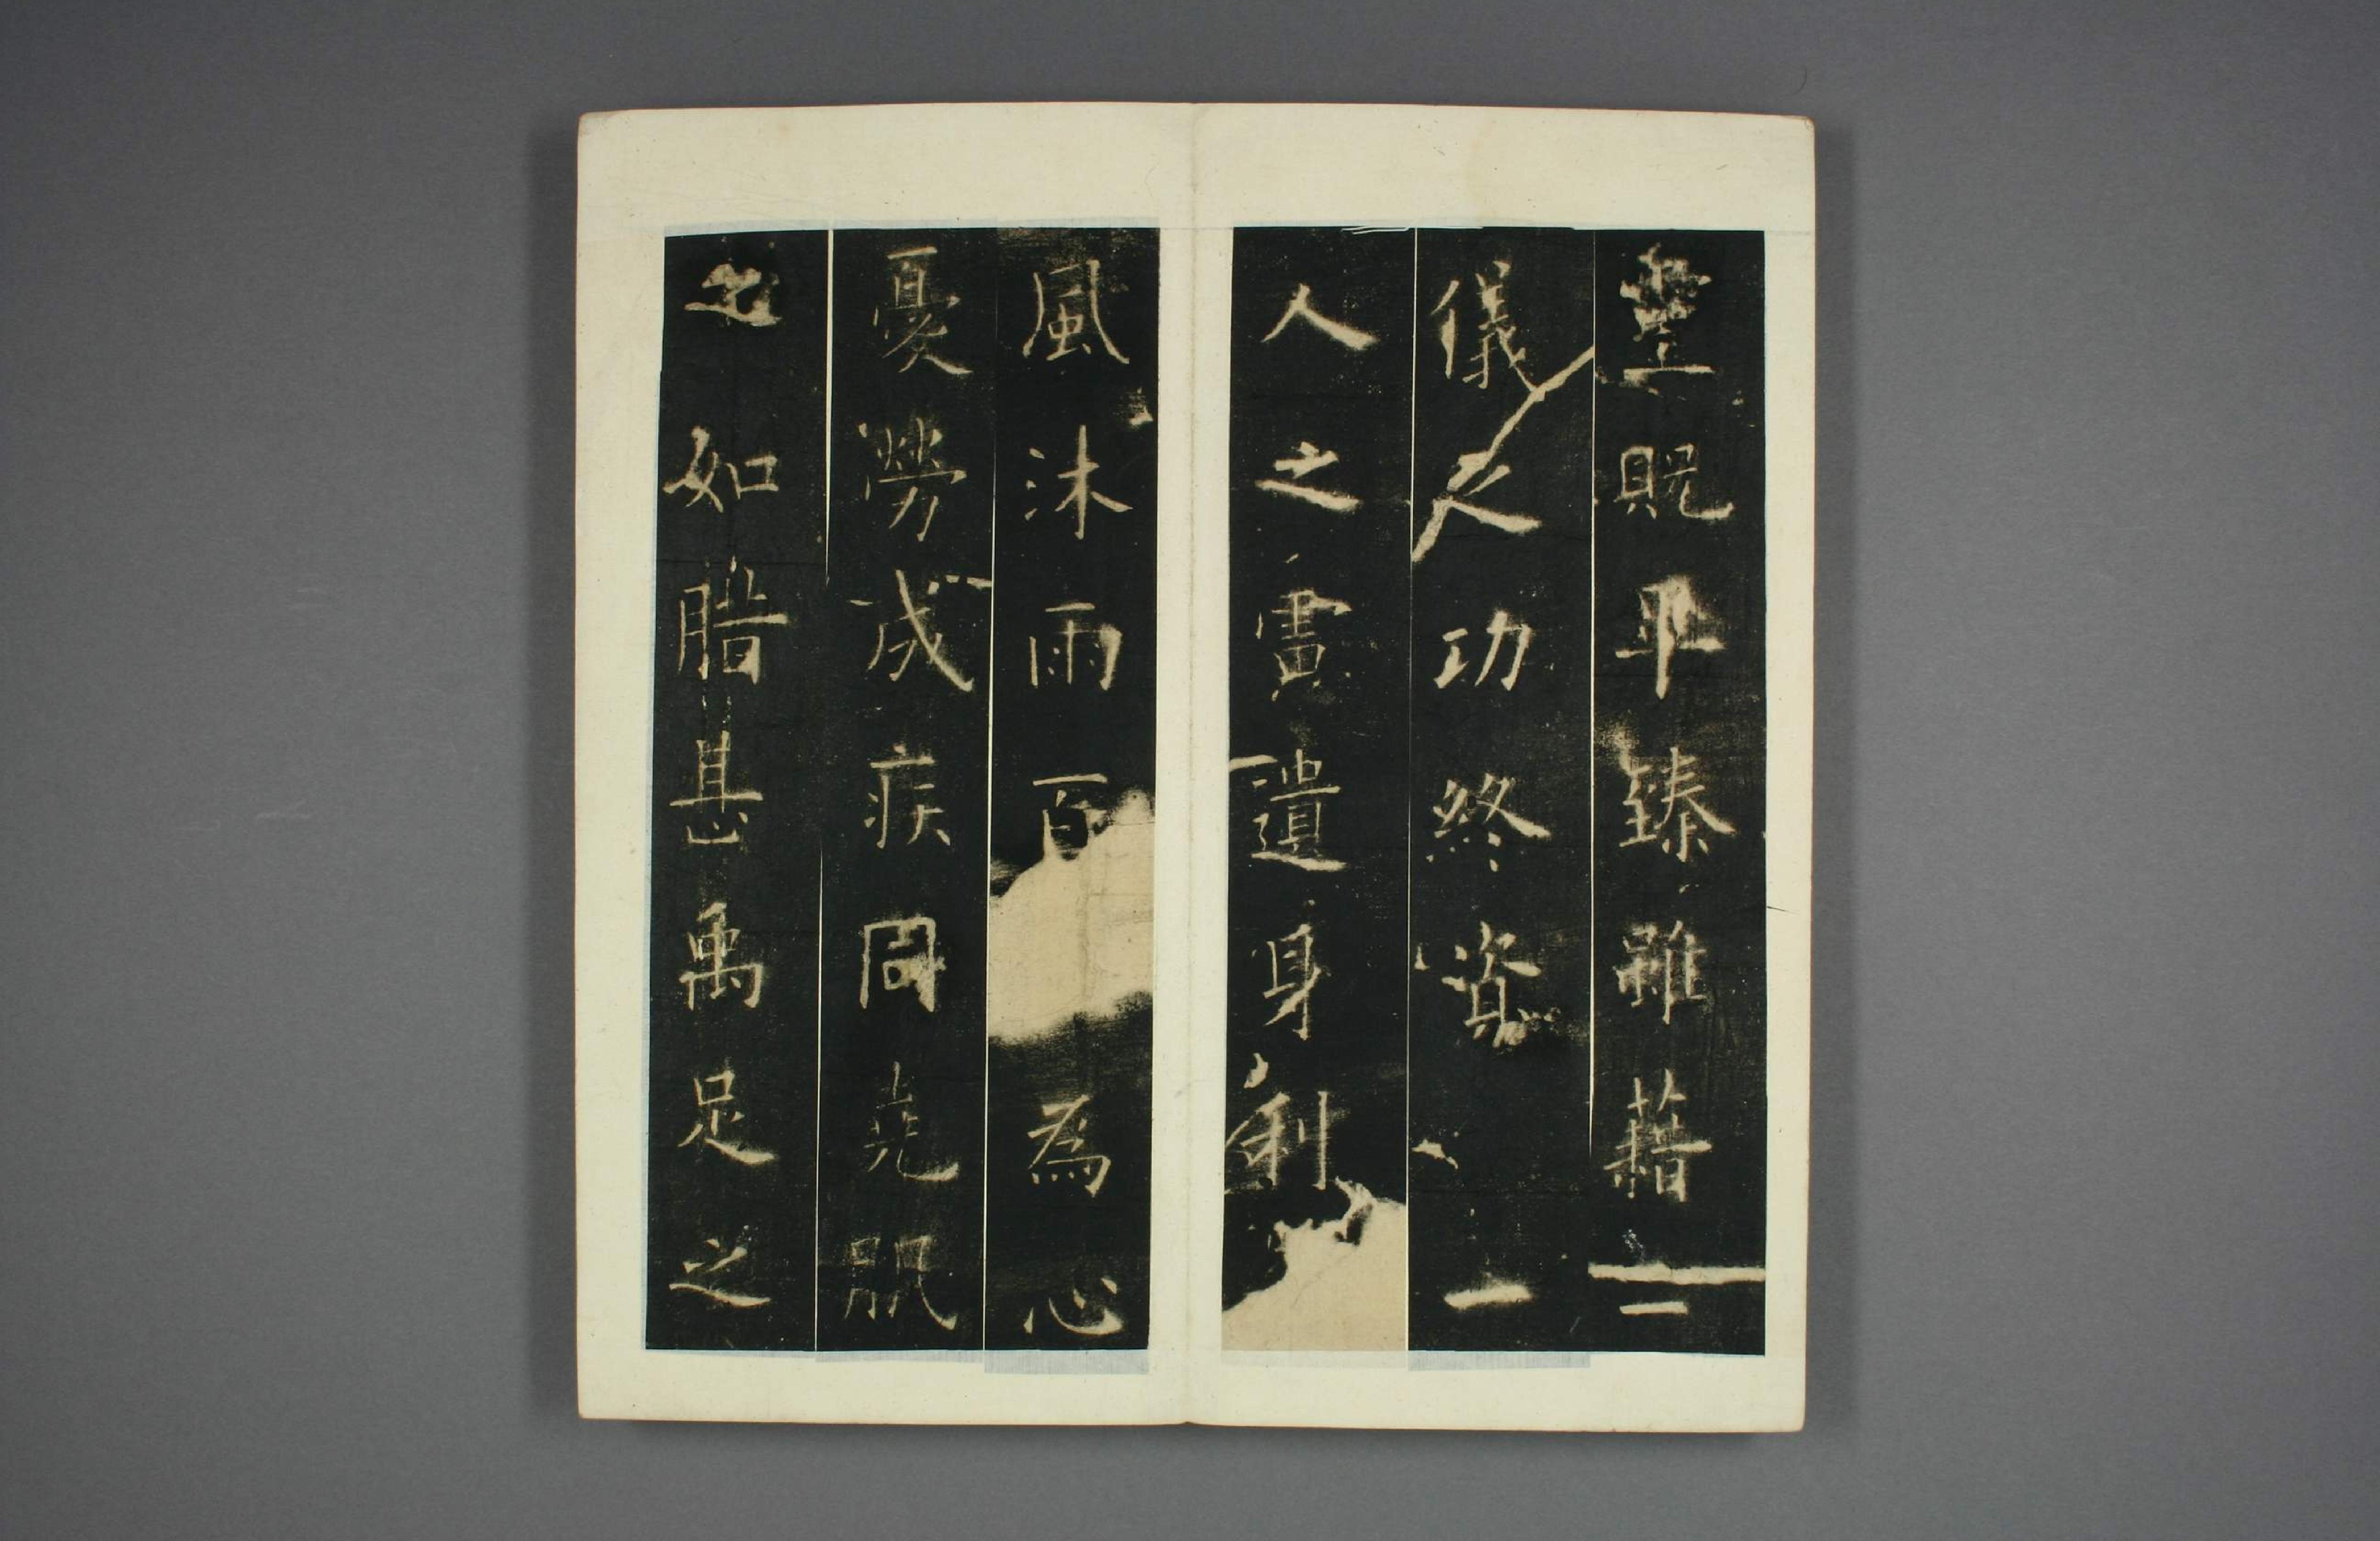 豐貺畢臻雖藉二
儀之功終資一
人之慮遺身利
風沐雨百為心
憂勞成疾同堯肌
之如腊甚禹足之